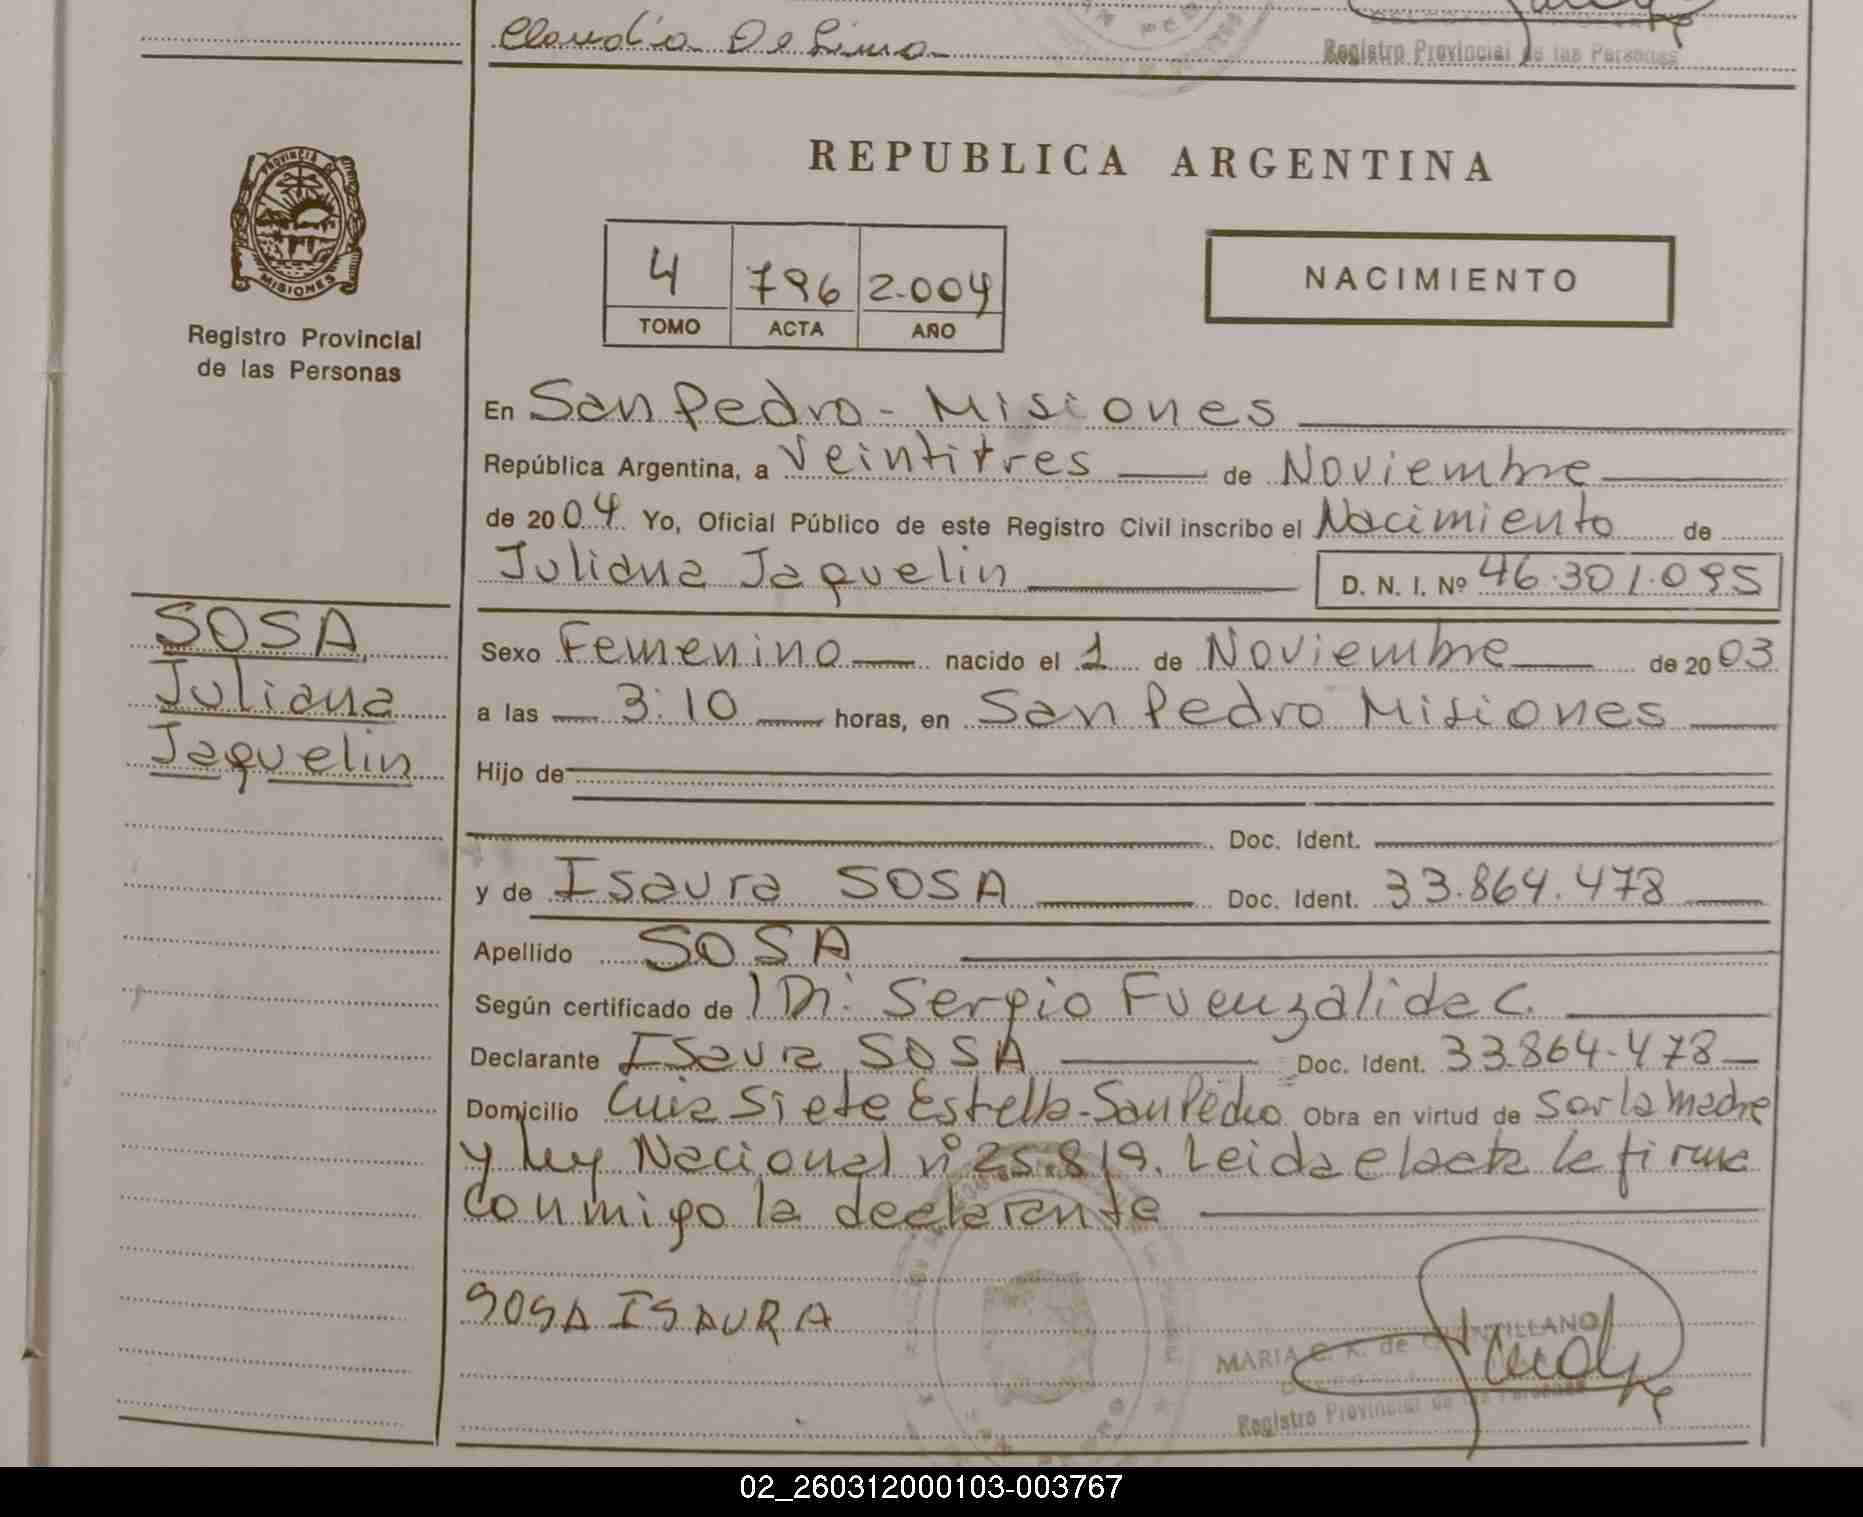 Claudia De Lima
Registro Provincial de las Personas
PROVINCIA DE
MISIONES
Registro Provincial
de las Personas
REPUBLICA ARGENTINA
4 796 2.004
TOMO ACTA AÑO
NACIMIENTO
En San Pedro - Misiones
República Argentina, a Veintitres de Noviembre
de 2004 Yo, Oficial Público de este Registro Civil inscribo el Nacimiento de
Juliana Jaquelin D. N. I. Nº 46.301.095
SOSA
Juliana
Jaquelin
Sexo Femenino nacido el 1 de Noviembre de 2003
a las 3:10 horas, en San Pedro Misiones
Hijo de
Doc. Ident.
y de Isaura SOSA Doc. Ident. 33.864.478
Apellido SOSA
Según certificado de Dr. Sergio Fuenzalida C.
Declarante Isaura SOSA Doc. Ident. 33.864.478
Domicilio Cruce Siete Estrella - San Pedro Obra en virtud de Ser la madre
y ley Nacional nº 25.819. Leida el acta la firma
conmigo la declarante
SOSA ISAURA
MARIA C. K. de
Registro Provincial de las Personas
02_260312000103-003767